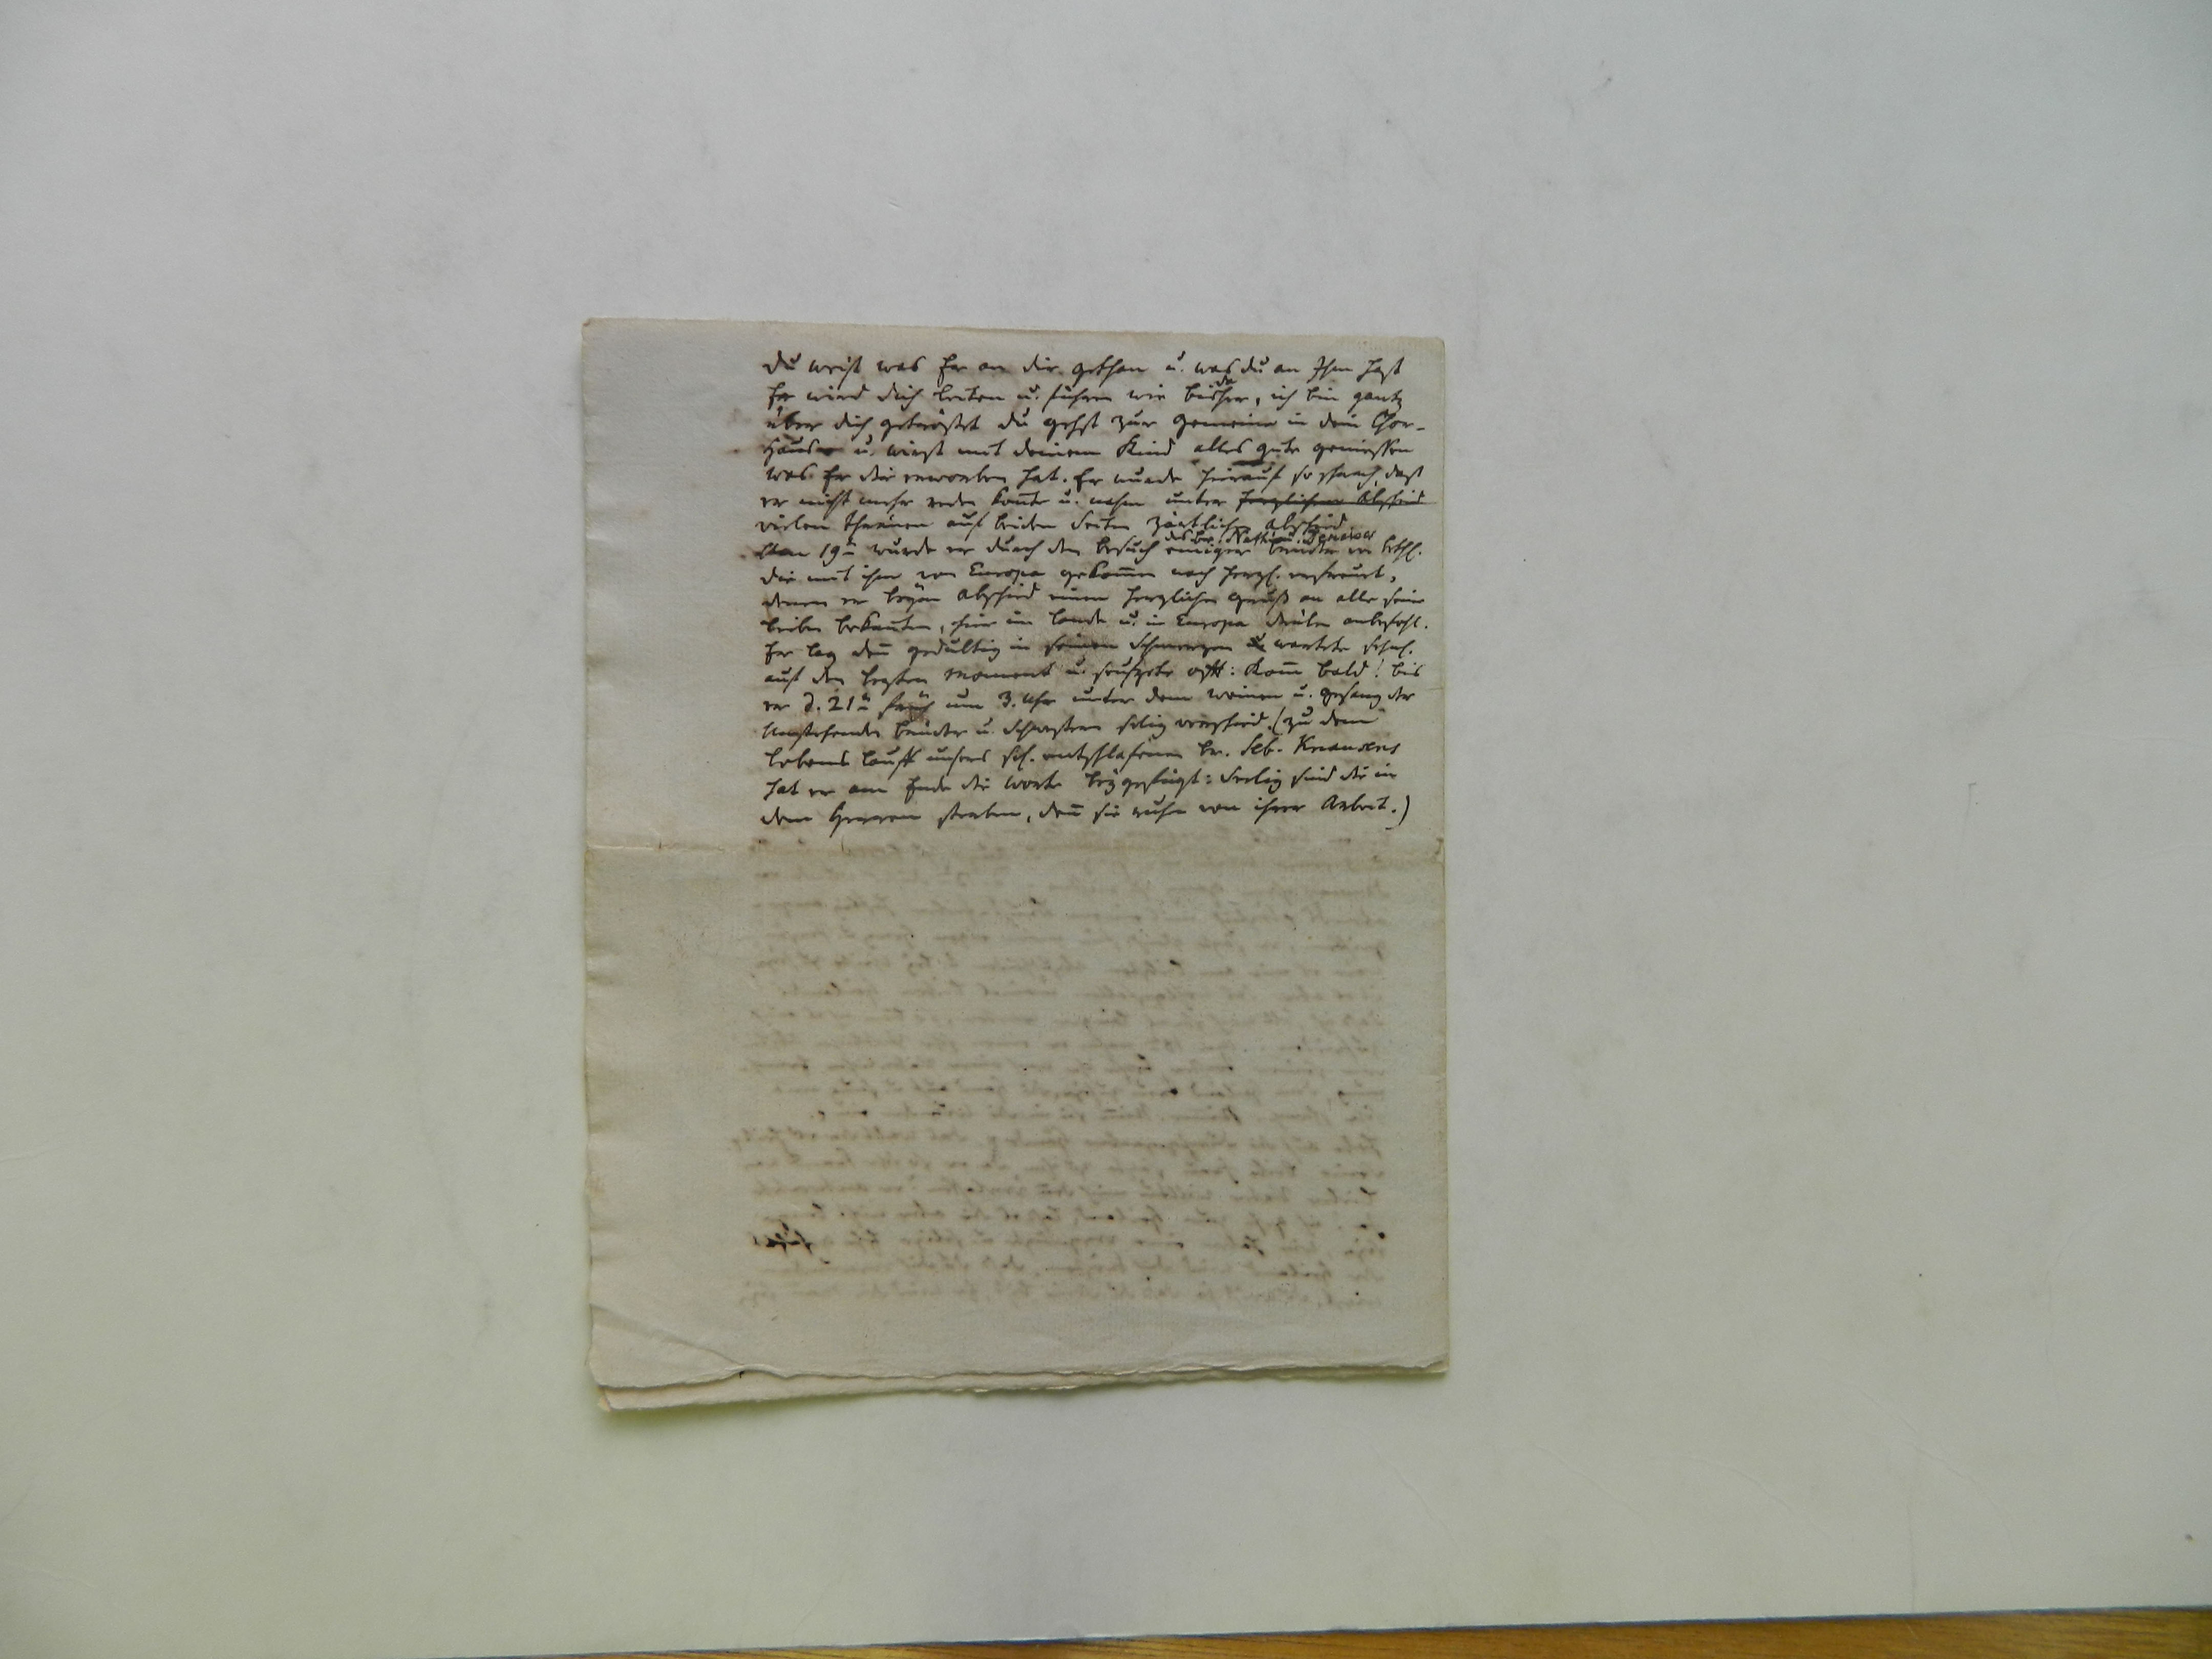 Du weist was Er an dir gethan u. was du an Ihm hast
Er wird dich leiten u. führen wie bisher, ich bin gantz
über dich getröstet du gehst zur Gemeine in dein Chor-
Hauß u. wirst mit deinem Kind alles gute geniessen
was Er dir erworben hat. Er wurde hierauf so schwach, dass
er nicht mehr reden konte u. nahm unter herzlichen Abschied
vielen thränen auf beiden Seiten zärtlichen abschied
des Br. u.
Den 19n wurde er durch den besuch einiger brüder in bethl.
die mit ihm von Europa gekom̄en noch herzl. erfreuet,
denen er beym Abschied einen herzlichen gruß an alle seine
lieben bekan̄ten, hier im lande u. in Europa drüben anbefohl.
Er lag den̄ gedultig in seinen Schmerzen u. wartete sehnl.
auf den lezten Moment u. seufzete offt: Kom̄ bald! bis
er d. 21n früh um 3. Uhr unter dem weinen u. gesang der
Umstehenden brüder u. Schwestern selig verschied. (zu dem
lebens lauff unsers sel. entschlafenen br. Seb. Knausens
hat er am Ende die worte beygefügt: Seelig sind die in
dem Herren sterben, den̄ sie ruhen von ihrer Arbeit.)